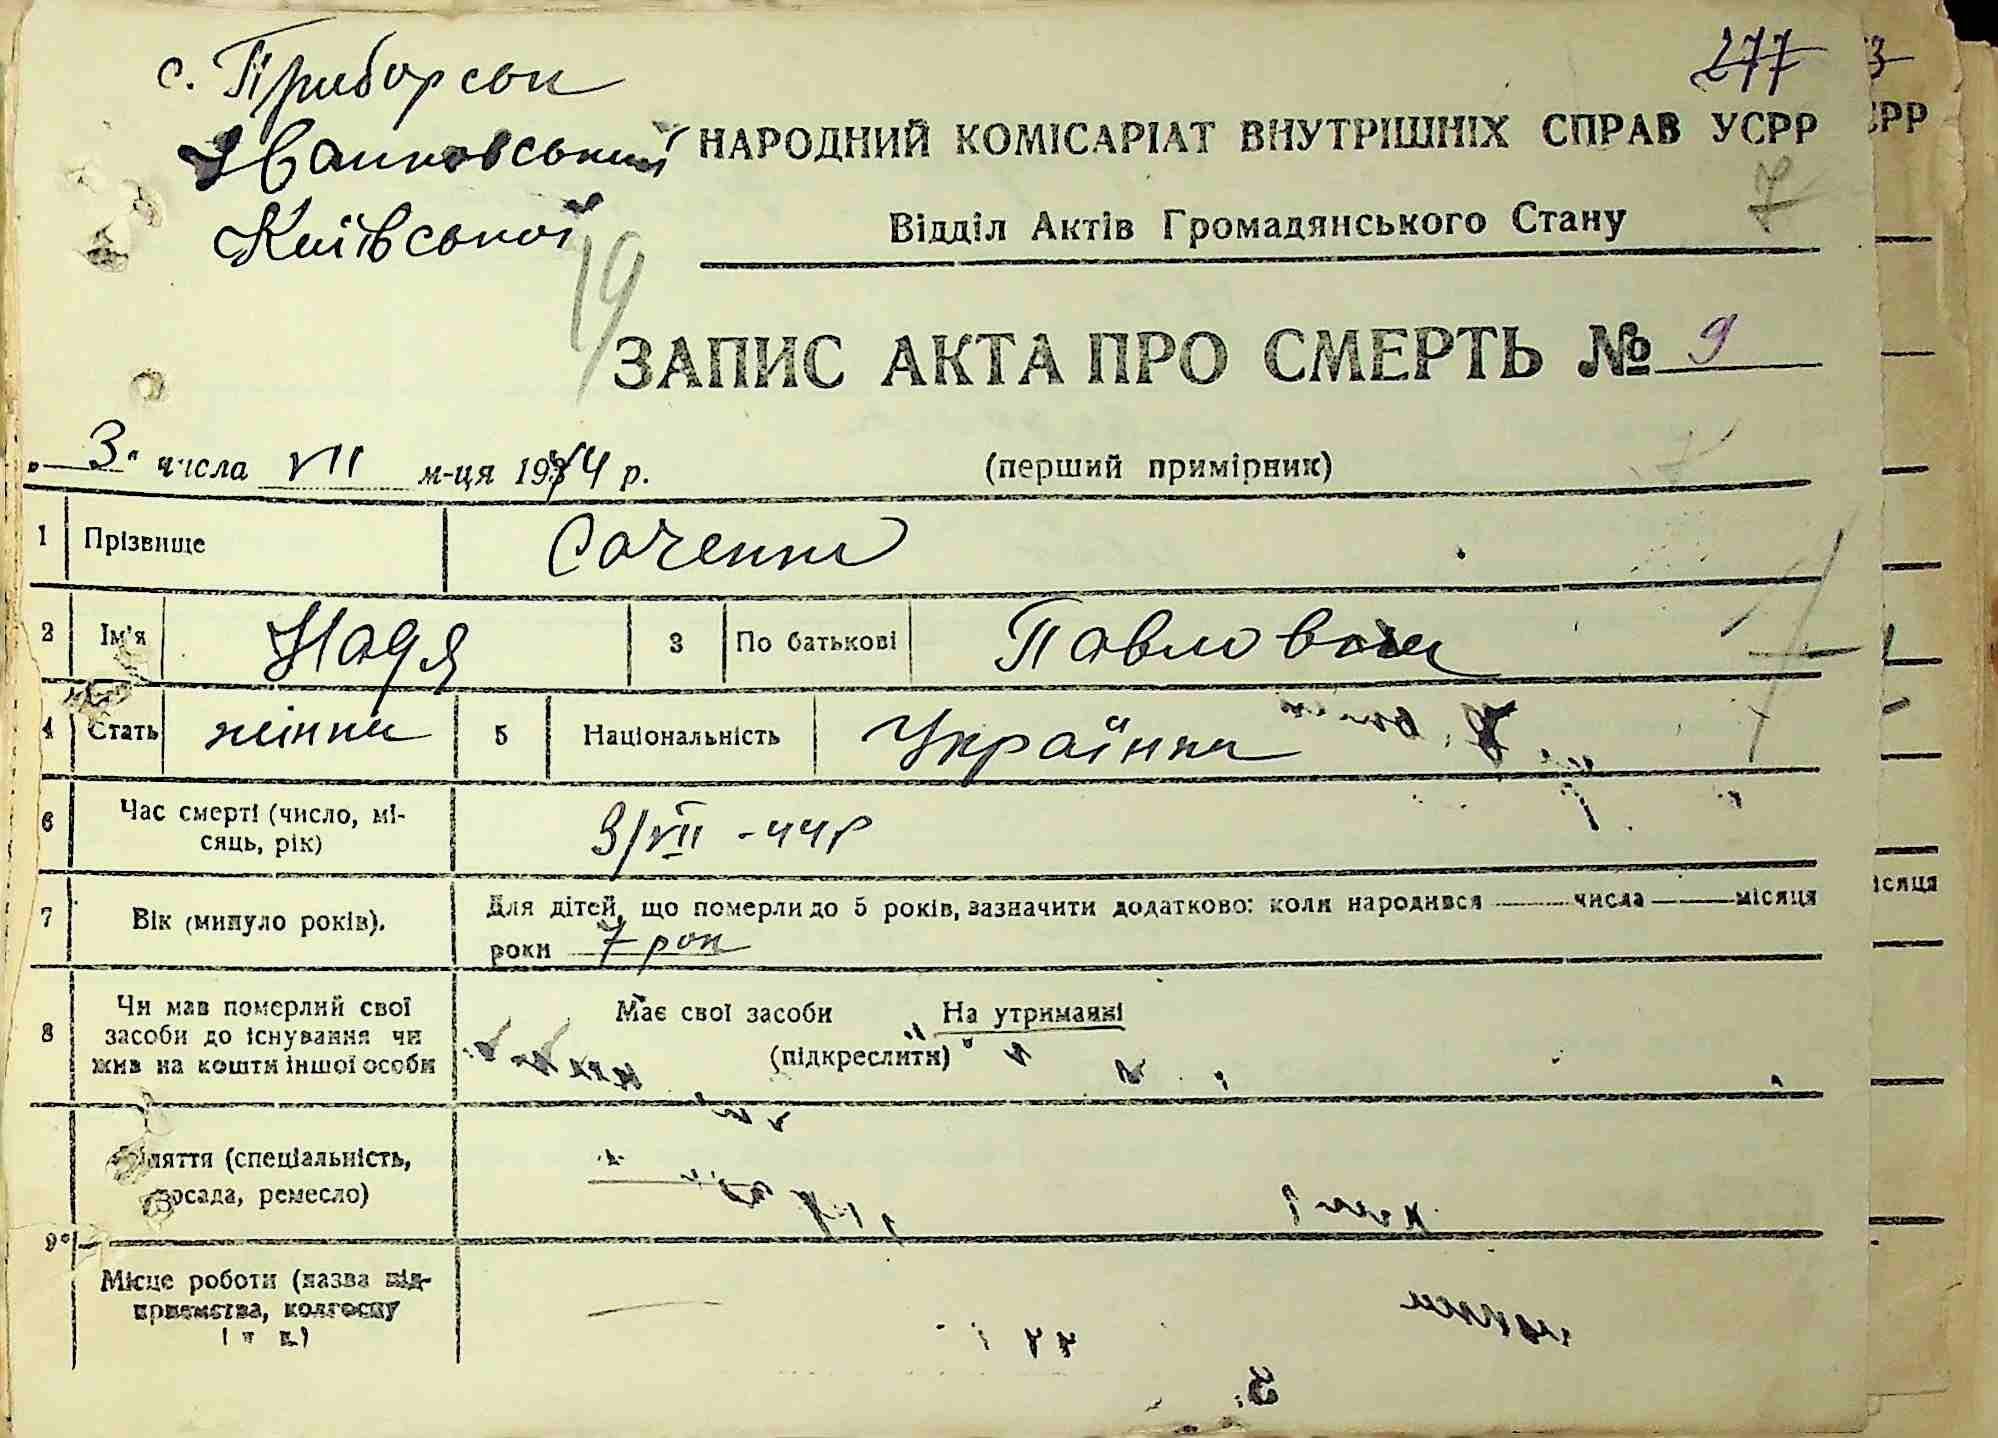 с. Приборськ
277
Іванковський
НАРОДНИЙ КОМІСАРІАТ ВНУТРІШНІХ СПРАВ УСРР
Київської
Відділ Актів Громадянського Стану
7
19
ЗАПИС АКТА ПРО СМЕРТЬ № 9
„ 3 “ числа VII м-ця 1944 р. (перший примірник)
1 Прізвище Соченко
2 Ім'я Надя 3 По батькові Павловна
4 Стать жінка 5 Національність Українка
6 Час смерті (число, мі-
сяць, рік) 3/VII - 44р
7 Вік (минуло років). Для дітей, що померли до 5 років, зазначити додатково: коли народився числа місяця
роки 7 рок
8 Чи мав померлий свої
засоби до існування чи
жив на кошти іншої особи
Має свої засоби На утриманні
(підкреслити)
9 Заняття (спеціальність,
посада, ремесло)
Місце роботи (назва під-
приємства, колгоспу
і т. д.)